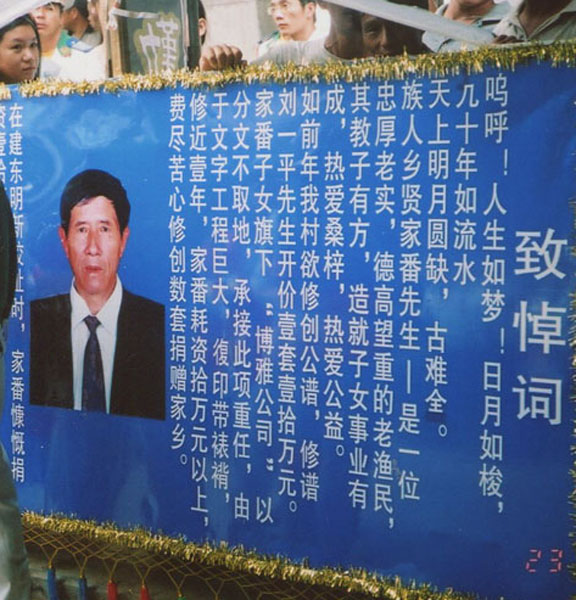 致悼词
呜呼！人生如梦！日月如梭，
九十年如流水
天上明月圆缺，古难全。
族人乡贤家番先生—是一位
忠厚老实，德高望重的老渔民，
其教子有方，造就子女事业有
成，热爱桑梓，热爱公益。
如前年我村欲修创公谱，修谱
刘一平先生开价壹套壹拾万元。
家番子女旗下“博雅公司”以
分文不取地，承接此项重任，由
于文字工程巨大，复印带裱褙，
修近壹年，家番耗资拾万元以上，
费尽苦心修创数套捐赠家乡。
在建东明新校址时，家番慷慨捐
资壹拾
23